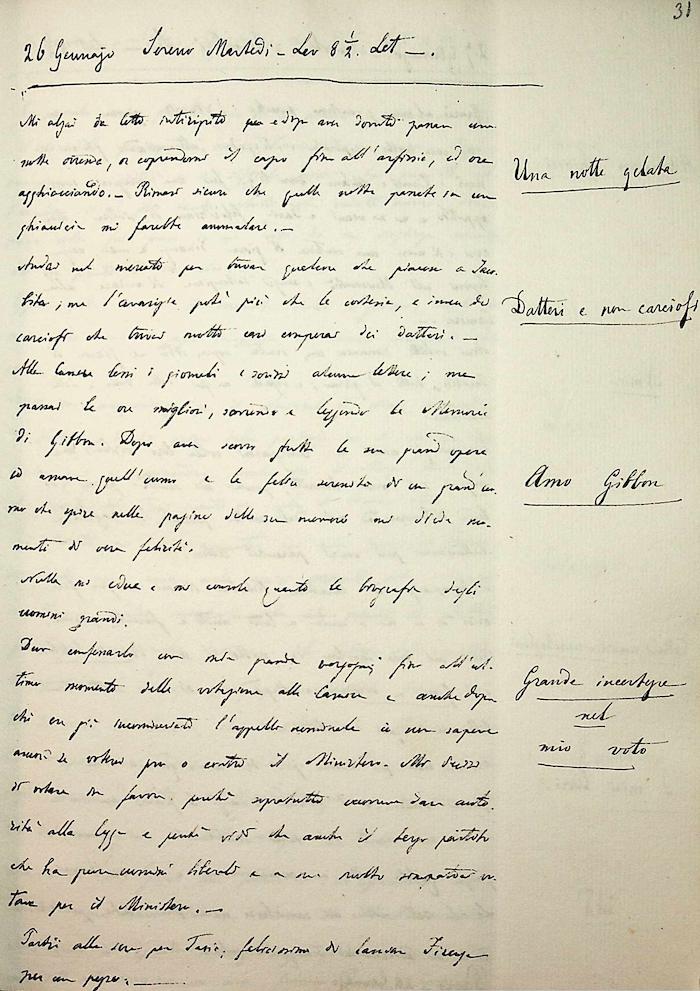 31
26 Gennajo Sereno Martedì - Lev 8 1/2. Let —.
Mi alzai da letto intirizzito dopo aver dovuto passare una
notte orrenda, or coprendomi il capo fin all'asfissia, ed ora
agghiacciando. — Rimasi sicuro che quella notte passata in una
ghiacciaia mi farebbe ammalare. —
Una notte gelata
Andai nel mercato per trovar qualcosa che piacesse a
ma l'avarizia potè più che la cortesia, e invece di
carciofi che trovai molto cari comperai dei datteri. —
Datteri e non carciofi
Alla Camera lessi i giornali e scrissi alcune lettere; ma
passai le ore migliori, scorrendo e leggendo le Memorie
di Gibbon. Dopo aver scorso tutta la sua grand'opera
io amava quell'uomo e la felice serenità di un grand'uo-
mo che spira nelle pagine delle sue memorie mi diede mo-
menti di vera felicità.
Amo Gibbon
Nulla mi educa e mi consola quanto le biografie degli
uomini grandi.
Devo confessarlo con mia grande vergogna, fino all'ul-
timo momento della votazione alla Camera e anche dopo
che era già incominciato l'appello nominale io non sapeva
ancora se voterei pro o contro il Ministero. Mi decisi
di votare in favore perchè sopratutto occorreva dare auto-
rità alla legge e perchè vidi che anche il terzo partito
che ha pure uomini liberali e a me molto simpatici vo-
tava per il Ministero. —
Grande incertezza
nel
mio voto
Partii alla sera per felicissimo di lasciar Firenze
per un pezzo. —